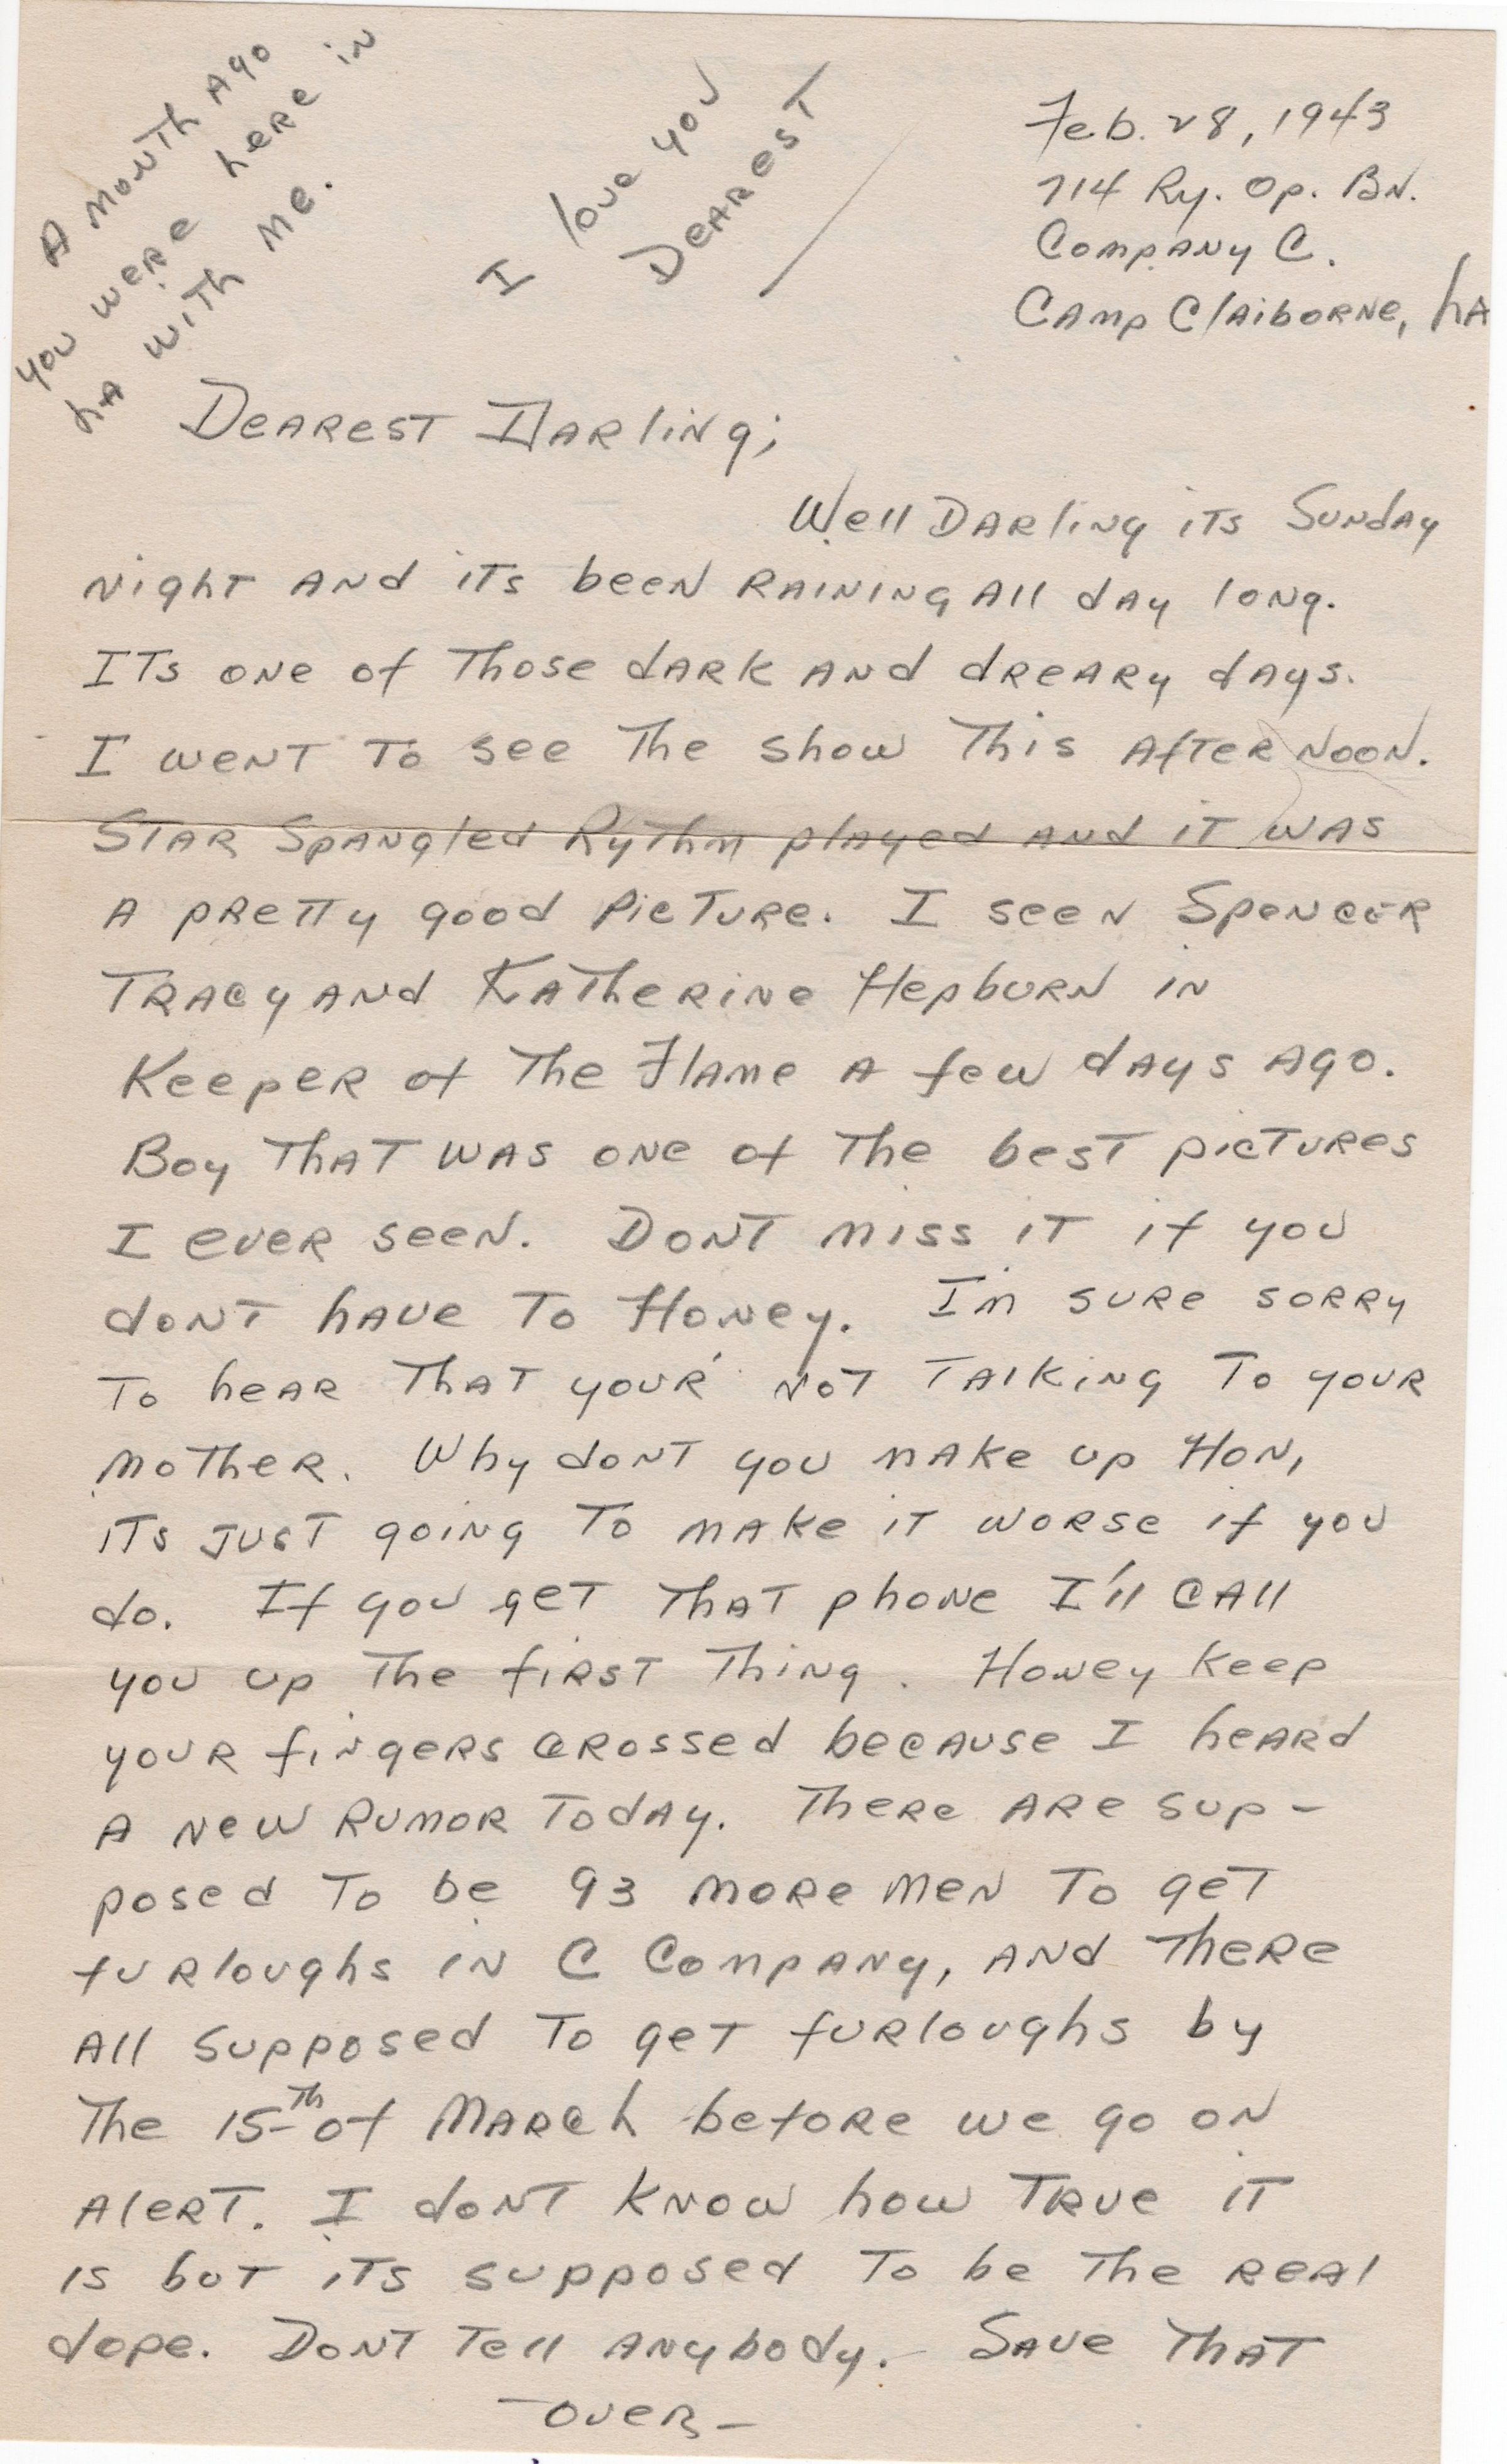 A month ago
you were here in
La with me.
I love you
Dearest
Feb. 28, 1943
714 Ry. Op. Bn.
Company C.
Camp Claiborne, La
Dearest Darling;
Well Darling its Sunday
night and its been raining all day long.
Its one of those dark and dreary days.
I went to see the show this afternoon.
Star Spangled Rythm played and it was
a pretty good picture. I seen Spencer
Tracy and Katherine Hepburn in
Keeper of the Flame a few days ago.
Boy that was one of the best pictures
I ever seen. Dont miss it if you
dont have to Honey. Im sure sorry
to hear that your' not talking to your
mother. Why dont you make up Hon,
its just going to make it worse if you
do. If you get that phone I'll call
you up the first thing. Honey keep
your fingers crossed because I heard
a new rumor today. There are sup-
posed to be 93 more men to get
furloughs in C Company, and there
all supposed to get furloughs by
the 15th of March before we go on
alert. I dont know how true it
is but its supposed to be the real
dope. Dont tell anybody. Save that
-over-